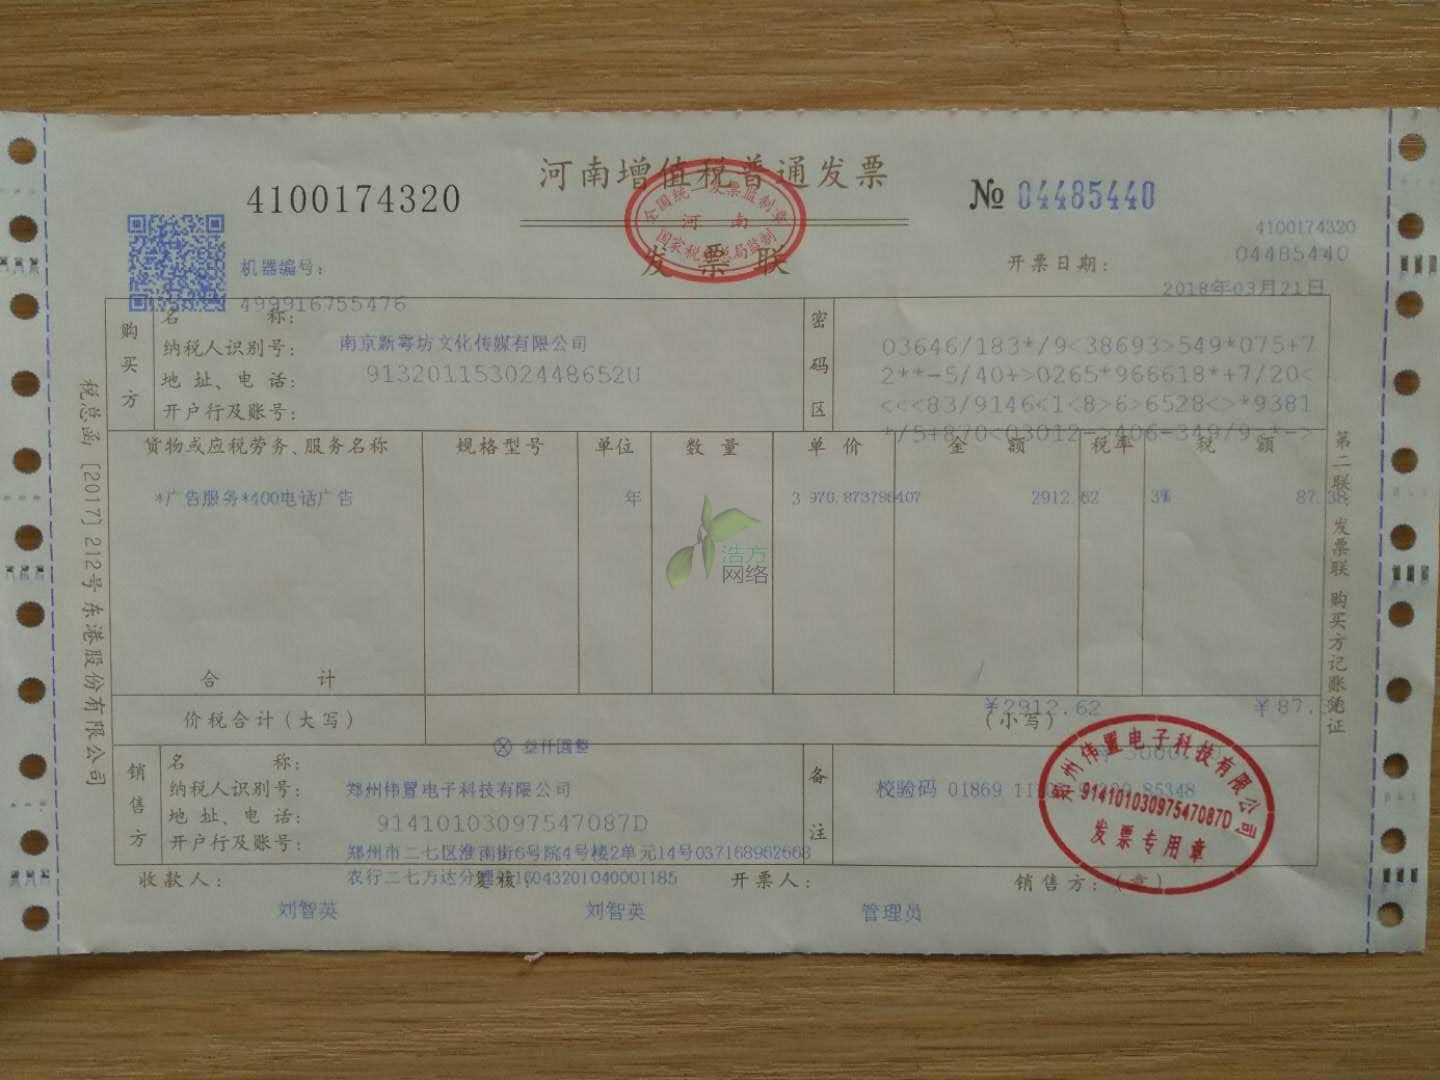 河南增值税普通发票
4100174320
№ 04485440
全国统一发票监制章
河 南
国家税务总局监制
发票联
4100174320
04485440
机器编号：
499916755476
开票日期：
2018年03月21日
购买方
名 称：
南京新弯坊文化传媒有限公司
纳税人识别号：
91320115302448652U
地 址、电 话：
开户行及账号：
密码区
03646/183*/9<38693>549*075+7
2**-5/40+>0265*966618*+7/20<
<<<83/9146<1<8>6>6528<>*9381
*/5+870<03012->406-349/9<*->
货物或应税劳务、服务名称 规格型号 单位 数 量 单 价 金 额 税率 税 额
*广告服务*400电话广告 年 3 970.873796407 2912.62 3% 87.38
合 计
¥2912.62 ¥87.38
价税合计（大写）
ⓧ 叁仟圆整
（小写）
销售方
名 称：
郑州伟置电子科技有限公司
纳税人识别号：
91410103097547087D
地 址、电 话：
郑州市二七区淮南街6号院4号楼2单元14号037168962668
开户行及账号：
农行二七万达分理处16043201040001185
备注
校验码 01869 85348
收款人：
刘智英
复核：
刘智英
开票人：
管理员
销售方：（章）
郑州伟置电子科技有限公司
91410103097547087D
发票专用章
税总函〔2017〕212号东港股份有限公司
第二联：发票联 购买方记账凭证
浩方
网络